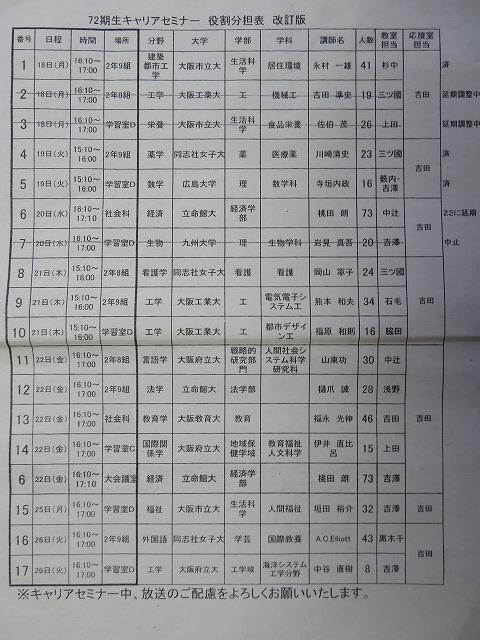 72期生キャリアセミナー 役割分担表 改訂版
番号 日程 時間 場所 分野 大学 学部 学科 講師名 人数 教室担当 応接室担当
1 18日(月) 16:10～17:00 2年9組 建築都市工学 大阪市立大 生活科学 居住環境 永村 一雄 41 杉中 済
2 18日(月) 16:10～17:00 2年8組 工学 大阪工業大 工 機械工 吉田 準史 19 三ツ國 吉田 延期調整中
3 18日(月) 16:10～17:00 学習室D 栄養 大阪市立大 生活科学 食品栄養 佐伯 茂 26 上田 延期調整中
4 19日(火) 15:10～16:00 2年9組 薬学 同志社女子大 薬 医療薬 川崎清史 23 三ツ國 吉田 済
5 19日(火) 15:10～16:00 学習室D 数学 広島大学 理 数学科 寺垣内政 16 薮内・吉澤 済
6 20日(水) 16:10～17:10 社会科 経済 立命館大 経済学部 桃田 朗 73 中辻 吉田 22に延期
7 20日(水) 16:10～17:00 学習室D 生物 九州大学 理 生物学科 岩見 真吾 20 吉澤 中止
8 21日(木) 15:10～16:00 2年8組 看護学 同志社女子大 看護 看護 岡山 寧子 24 三ツ國
9 21日(木) 15:10～16:00 2年9組 工学 大阪工業大 工 電気電子システム工 熊本 和夫 34 石毛 吉田
10 21日(木) 15:10～16:00 学習室D 工学 大阪工業大 工 都市デザイン工 福原 和則 16 脇田
11 22日(金) 16:10～17:00 2年8組 言語学 大阪府立大 戦略的研究部門 人間社会システム科学研究科 山東功 30 中辻
12 22日(金) 16:10～17:00 2年9組 法学 立命館大 法学部 樋爪 誠 28 浅野
13 22日(金) 16:10～17:00 社会科 教育学 大阪教育大 教育 福永 光伸 46 吉田 吉田
14 22日(金) 16:10～17:00 学習室C 国際関係学 大阪府立大 地域保健学域 教育福祉人文科学 伊井 直比呂 15 上田
6 22日(金) 16:10～17:10 大会議室 経済 立命館大 経済学部 桃田 朗 73 吉澤
15 25日(月) 16:10～17:00 学習室D 福祉 大阪市立大 生活科学 人間福祉 垣田 裕介 32 吉澤 吉田
16 26日(火) 16:10～17:00 2年9組 外国語 同志社女子大 学芸 国際教養 A.C.Elliott 43 黒木千 吉田
17 26日(火) 16:10～17:00 学習室D 工学 大阪府立大 工学域 海洋システム工学分野 中谷 直樹 8 吉澤
※キャリアセミナー中、放送のご配慮をよろしくお願いいたします。